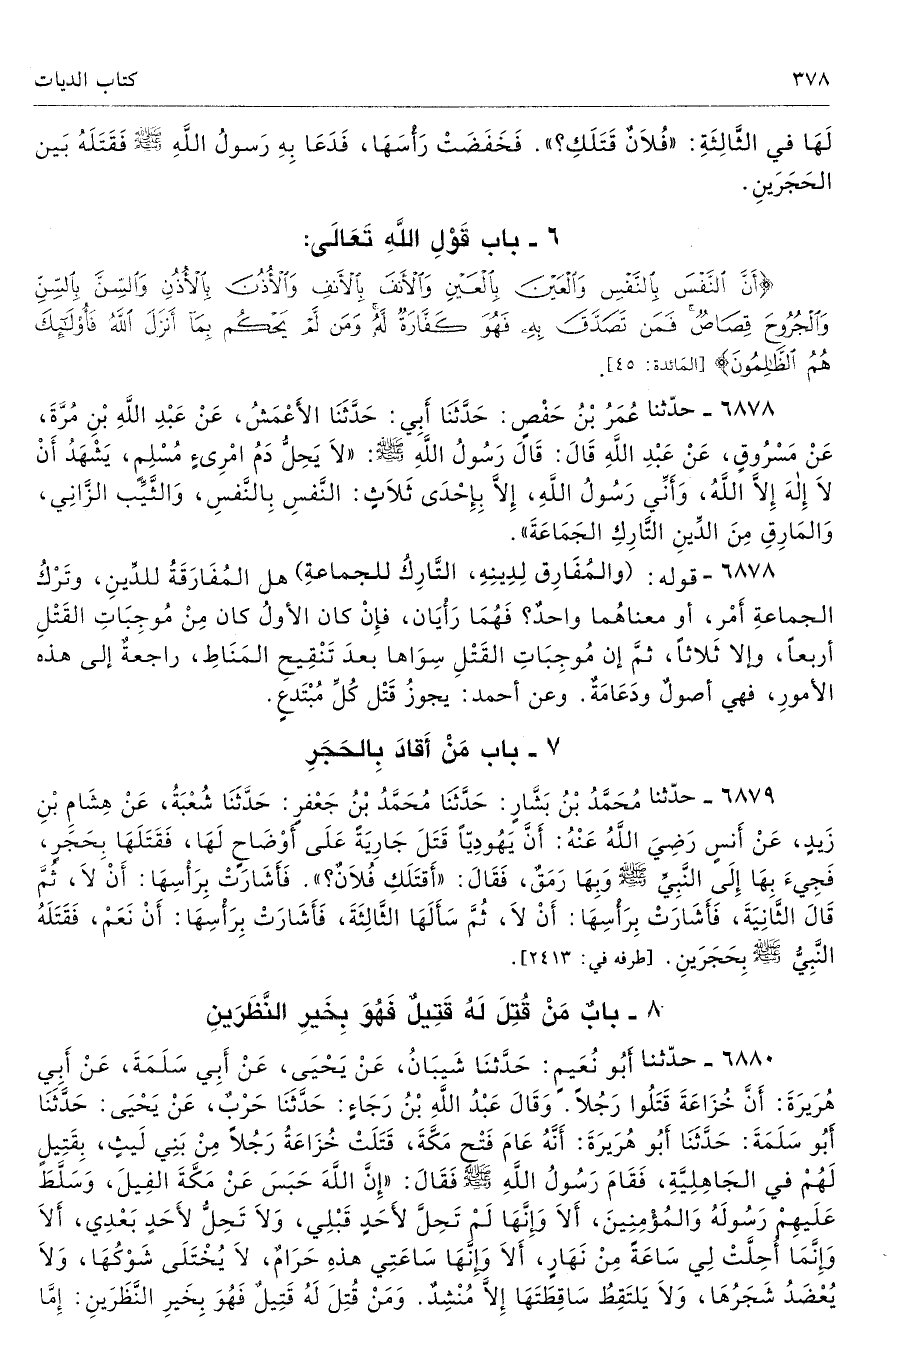 ٣٧٨ كتاب الديات
لَهَا في الثَّالِثَةِ: «فُلاَنٌ قَتَلَكِ؟». فَخَفَضَتْ رَأْسَهَا، فَدَعَا بِهِ رَسولُ اللَّهِ ﷺ فَقَتَلَهُ بَين
الحَجَرَينِ.
٦ ـ باب قَوْلِ اللَّهِ تَعَالَى:
﴿أَنَّ ٱلنَّفْسَ بِٱلنَّفْسِ وَٱلْعَيْنَ بِٱلْعَيْنِ وَٱلْأَنفَ بِٱلْأَنفِ وَٱلْأُذُنَ بِٱلْأُذُنِ وَٱلسِّنَّ بِٱلسِّنِّ
وَٱلْجُرُوحَ قِصَاصٌ ۚ فَمَن تَصَدَّقَ بِهِۦ فَهُوَ كَفَّارَةٌ لَّهُۥ ۚ وَمَن لَّمْ يَحْكُم بِمَآ أَنزَلَ ٱللَّهُ فَأُو۟لَـٰٓئِكَ
هُمُ ٱلظَّـٰلِمُونَ﴾ [المائدة: ٤٥].
٦٨٧٨ ـ حدّثنا عُمَرُ بْنُ حَفْصٍ: حَدَّثَنَا أَبِي: حَدَّثَنَا الأَعْمَشُ، عَنْ عَبْدِ اللَّهِ بْنِ مُرَّةَ،
عَنْ مَسْرُوقٍ، عَنْ عَبْدِ اللَّهِ قَالَ: قَالَ رَسُولُ اللَّهِ ﷺ: «لاَ يَحِلُّ دَمُ امْرِىءٍ مُسْلِمٍ، يَشْهَدُ أَنْ
لاَ إِلٰهَ إِلاَّ اللَّهُ، وَأَنِّي رَسُولُ اللَّهِ، إِلاَّ بِإِحْدَى ثَلاَثٍ: النَّفْسِ بِالنَّفْسِ، وَالثَّيِّبِ الزَّانِي،
وَالمَارِقِ مِنَ الدِّينِ التَّارِكِ الجَمَاعَةَ».
٦٨٧٨ ـ قوله: (والمُفَارِق لِدِينِهِ، التَّارِكُ للجماعةِ) هل المُفَارَقَةُ للدِّينِ، وتَرْكُ
الجماعةِ أَمْر، أو معناهُما واحدٌ؟ فَهُمَا رَأْيَان، فإنْ كان الأولُ كان مِنْ مُوجِبَاتِ القَتْلِ
أربعاً، وإلا ثَلاثاً، ثمَّ إن مُوجِبَاتِ القَتْلِ سِوَاها بعدَ تَنْقِيحِ المَنَاطِ، راجعةٌ إلى هذه
الأمورِ، فهي أصولٌ ودَعَامَةٌ. وعن أحمد: يجوزُ قَتْل كُلِّ مُبْتَدِعٍ.
٧ ـ باب مَنْ أَقَادَ بِالحَجَرِ
٦٨٧٩ ـ حدّثنا مُحَمَّدُ بْنُ بَشَّارٍ: حَدَّثَنَا مُحَمَّدُ بْنُ جَعْفَرٍ: حَدَّثَنَا شُعْبَةُ، عَنْ هِشَامِ بْنِ
زَيدٍ، عَنْ أَنَسٍ رَضِيَ اللَّهُ عَنْهُ: أَنَّ يَهُودِيّاً قَتَلَ جَارِيَةً عَلَى أَوْضَاحٍ لَهَا، فَقَتَلَهَا بِحَجَرٍ،
فَجِيءَ بِهَا إِلَى النَّبِيِّ ﷺ وَبِهَا رَمَقٌ، فَقَالَ: «أَقَتَلَكِ فُلاَنٌ؟». فَأَشَارَتْ بِرَأْسِهَا: أَنْ لاَ، ثُمَّ
قَالَ الثَّانِيَةَ، فَأَشَارَتْ بِرَأْسِهَا: أَنْ لاَ، ثُمَّ سَأَلَهَا الثَّالِثَةَ، فَأَشَارَتْ بِرَأْسِهَا: أَنْ نَعَمْ، فَقَتَلَهُ
النَّبِيُّ ﷺ بِحَجَرَينِ. [طرفه في: ٢٤١٣].
٨ ـ بابٌ مَنْ قُتِلَ لَهُ قَتِيلٌ فَهُوَ بِخَيرِ النَّظَرَينِ
٦٨٨٠ ـ حدّثنا أَبُو نُعَيمٍ: حَدَّثَنَا شَيبَانُ، عَنْ يَحْيَى، عَنْ أَبِي سَلَمَةَ، عَنْ أَبِي
هُرَيرَةَ: أَنَّ خُزَاعَةَ قَتَلُوا رَجُلاً. وَقَالَ عَبْدُ اللَّهِ بْنُ رَجَاءٍ: حَدَّثَنَا حَرْبٌ، عَنْ يَحْيَى: حَدَّثَنَا
أَبُو سَلَمَةَ: حَدَّثَنَا أَبُو هُرَيرَةَ: أَنَّهُ عَامَ فَتْحِ مَكَّةَ، قَتَلَتْ خُزَاعَةُ رَجُلاً مِنْ بَنِي لَيثٍ، بِقَتِيلٍ
لَهُمْ في الجَاهِلِيَّةِ، فَقَامَ رَسُولُ اللَّهِ ﷺ فَقَالَ: «إِنَّ اللَّهَ حَبَسَ عَنْ مَكَّةَ الفِيلَ، وَسَلَّطَ
عَلَيهِمْ رَسُولَهُ وَالمُؤْمِنِينَ، أَلاَ وَإِنَّهَا لَمْ تَحِلَّ لأَحَدٍ قَبْلِي، وَلاَ تَحِلُّ لأَحَدٍ بَعْدِي، أَلاَ
وَإِنَّمَا أُحِلَّتْ لِي سَاعَةً مِنْ نَهَارٍ، أَلاَ وَإِنَّهَا سَاعَتِي هذهِ حَرَامٌ، لاَ يُخْتَلَى شَوْكُهَا، وَلاَ
يُعْضَدُ شَجَرُهَا، وَلاَ يَلتَقِطُ سَاقِطَتَهَا إِلاَّ مُنْشِدٌ. وَمَنْ قُتِلَ لَهُ قَتِيلٌ فَهُوَ بِخَيرِ النَّظَرَينِ: إِمَّا